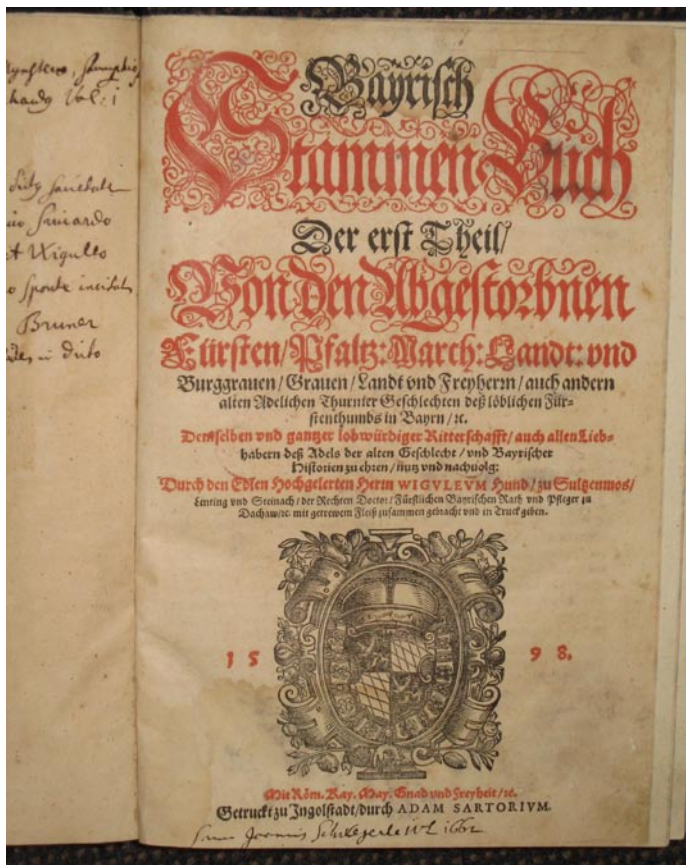 Vol: i
Bruner
Bayrisch
Stammen Buch
Der erst Theil/
Von den Abgestorbnen
Fürsten/Pfaltz: March: Landt: vnd
Burggrauen/Grauen/Landt vnd Freyherrn/auch andern
alten Adelichen Thurnier Geschlechten deß löblichen Für-
stenthumbs in Bayrn/ꝛc.
Demselben vnd gantzer lobwürdiger Ritterschafft/auch allen Lieb-
habern deß Adels der alten Geschlecht/vnd Bayrischer
Historien zu ehren/nutz vnd nachuolg:
Durch den Edlen Hochgelerten Herrn WIGVLEVM Hund/zu Sultzenmos/
Lenting vnd Steinach/der Rechten Doctor/Fürstlichen Bayrischen Rath vnd Pfleger zu
Dachaw/ꝛc. mit getrewem Fleiß zusammen gebracht vnd in Truck geben.
15 98.
Mit Röm. Kay. May. Gnad vnd Freyheit/ꝛc.
Getruckt zu Ingolstadt/durch ADAM SARTORIVM.
Sum Joannis 1662